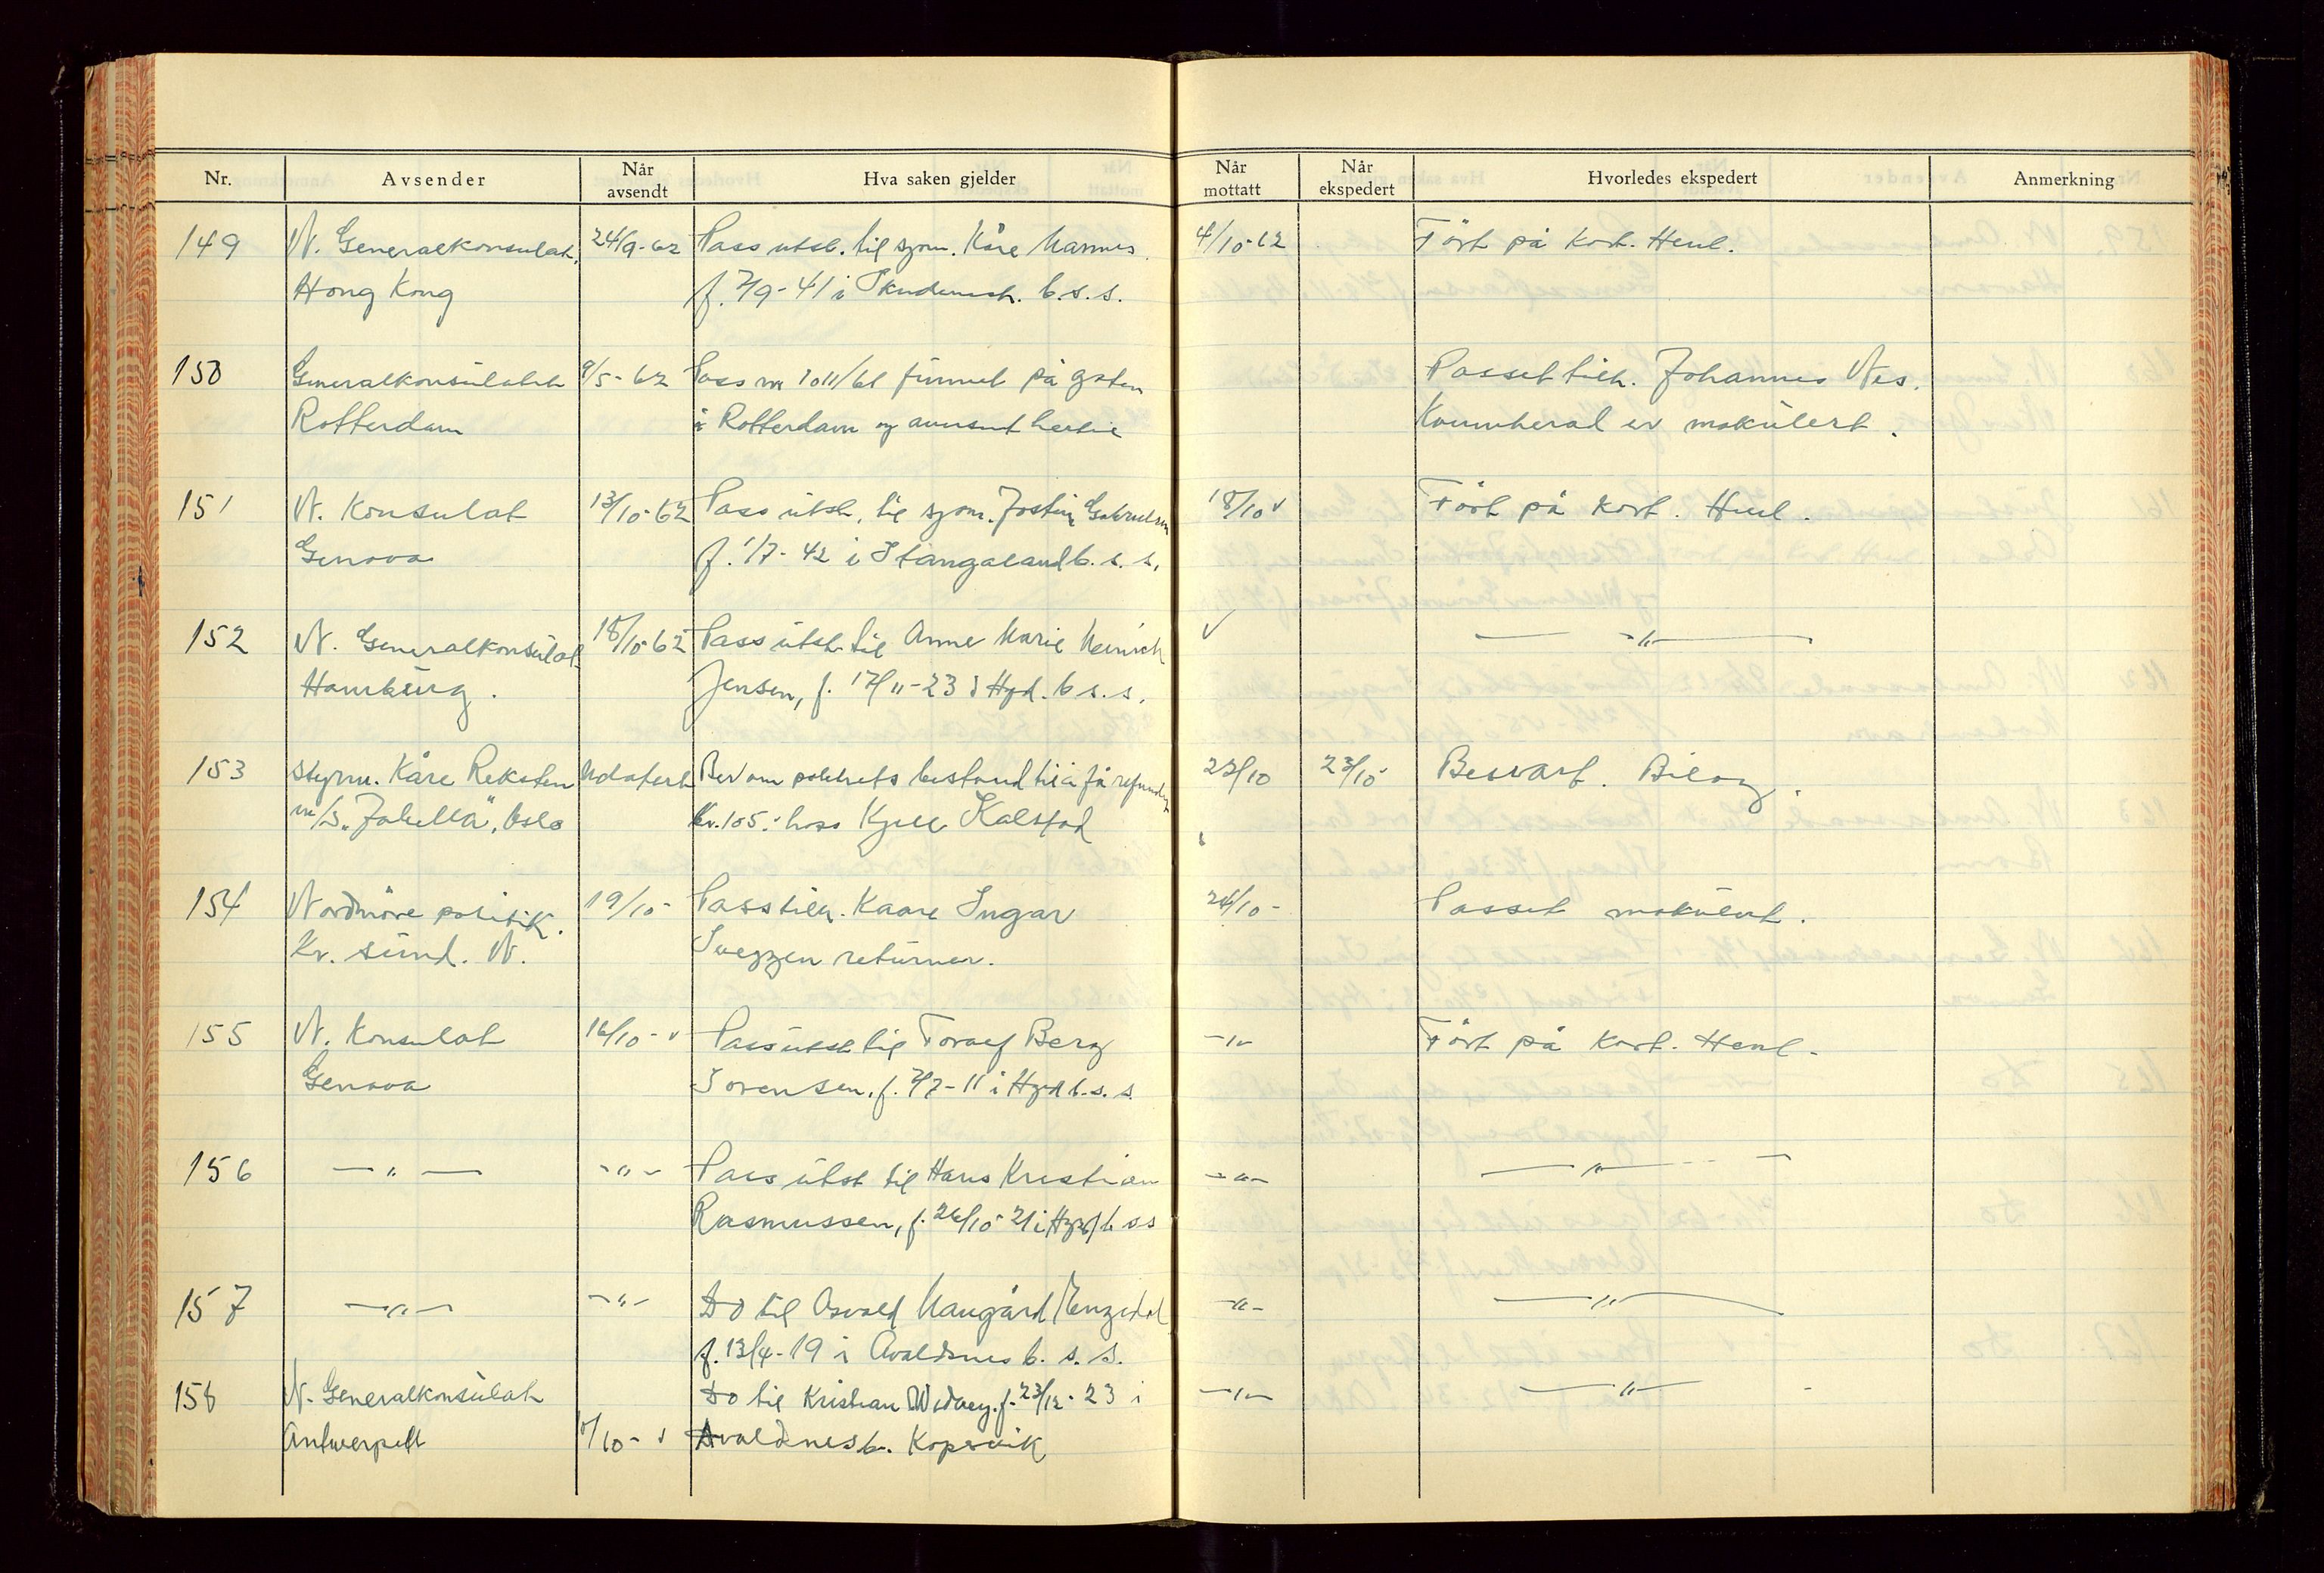 Nr. Avsender Når avsendt Hva saken gjelder Når mottatt Når ekspedert Hvorledes ekspedert Anmerkning
149 N. Generalkonsulat, 24/9-62 Pass utst. til sjøm. Kåre Mannes 4/10-62 Ført på kort. Henl.
Hong Kong f. 7/9-41 i b.s.s.
150 Generalkonsulatet 9/5-62 Pass nr 1011/61 funnet på gaten Passet tilh. Johannes Nes.
Rotterdam i Rotterdam og hertil er makulert.
151 N. Konsulat 13/10-62 Pass utst. til sjøm. Jostein Gabrielsen 18/10 Ført på kort. Henl.
Genova f. 1/7-42 i Stangaland b.s.s.
152 N. Generalkonsulat 18/10-62 Pass utst. til Anne Marie —"—
Hamburg. Jensen, f. 17/11-23 i Hgd. b.s.s.
153 Styrm. Kåre Reksten Udatert Ber om politiets bistand til å få refundert 22/10 23/10 Besvart. Bilag.
m/s. , Oslo kr. 105.- hos Kjell Kalstad
154 Nordmöre politik. 19/10- Pass tilh. Kaare Ingar 24/10- Passet makulert.
Kr. sund. N. returner.
155 N. Konsulat 16/10- Pass utst. til Toralf Berg —"— Ført på kort. Henl.
Genova Sorensen. f. 7/7-11 i Hgd b.s.s.
156 —"— —"— Pass utst til Hans Kristian —"— —"—
Rasmussen, f. 26/10-21 i Hgd b s s
157 —"— —"— Do til Osvald Haugård —"— —"—
f. 13/4-19 i Avaldsnes b. s. s.
158 N. Generalkonsulat Do til Kristian f. 23/12-23 i —"— —"—
Antwerpen /10- Avaldnes b. Kopervik